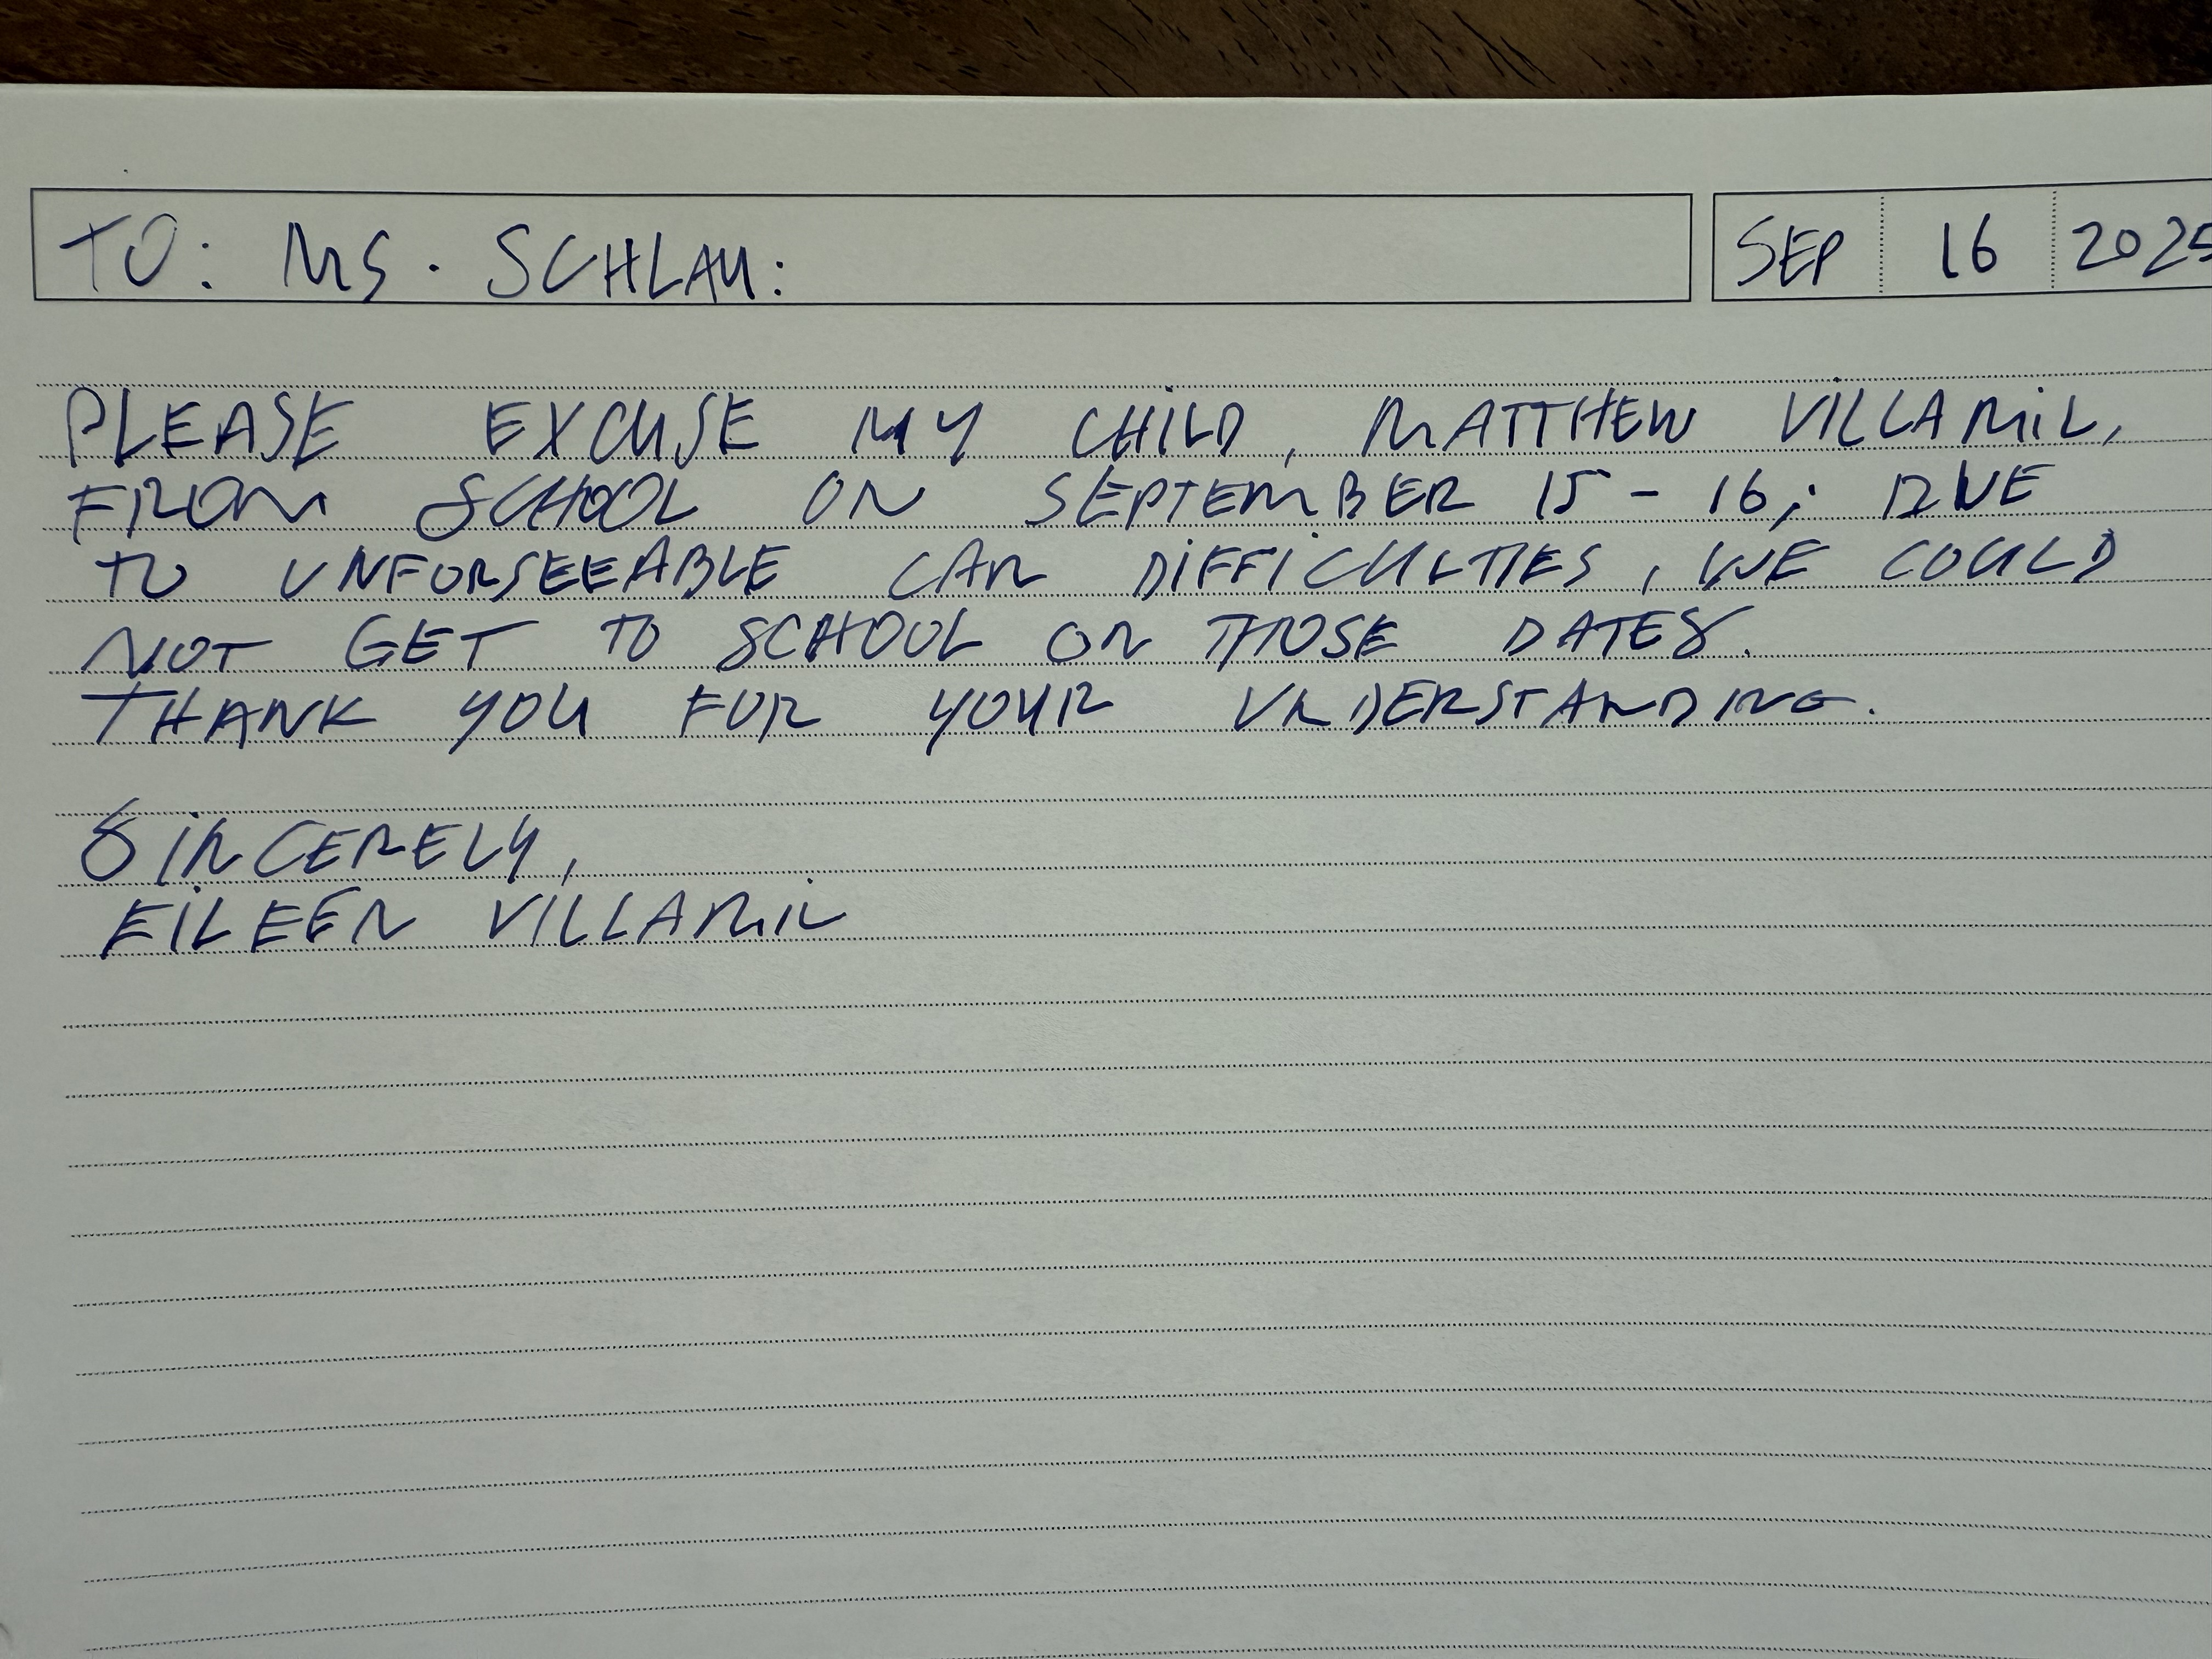 TO: MS. SCHLAU: SEP 16 2025
PLEASE EXCUSE MY CHILD, MATTHEW VILLAMiL,
FROM SCHOOL ON SEPTEMBER 15 - 16; DUE
TO UNFORSEEABLE CAR DiFFiCULTIES, WE COULD
NOT GET TO SCHOOL ON THOSE DATES.
THANK YOU FOR YOUR UNDERSTANDING.
SiNCERELY,
EiLEEN VILLAMiL